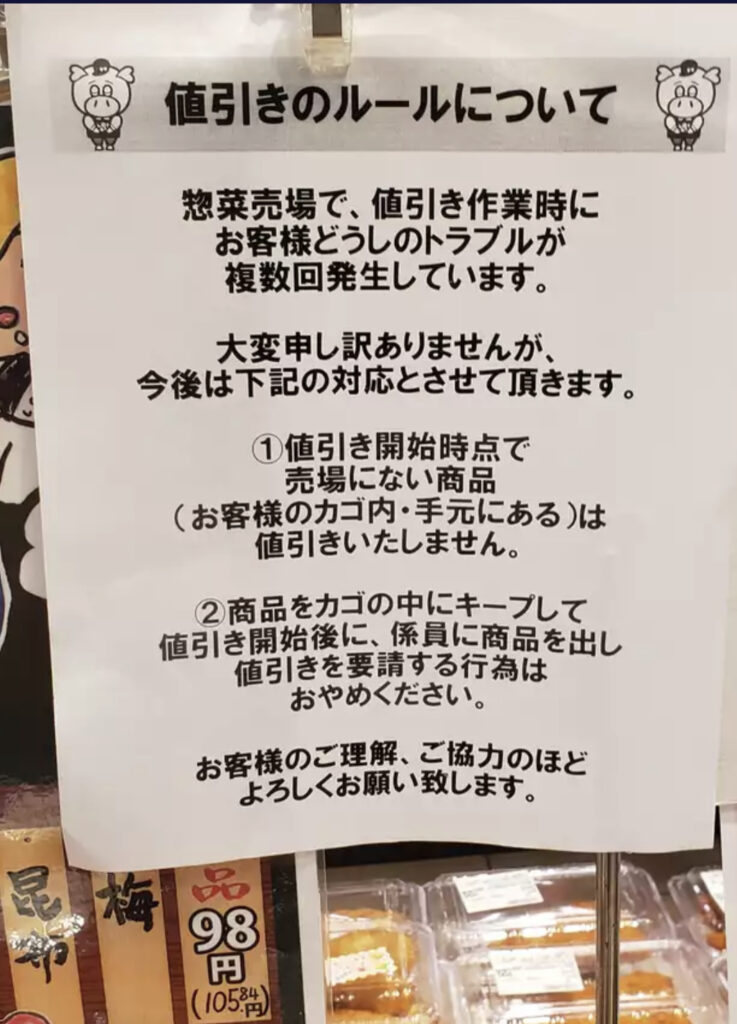 値引きのルールについて
惣菜売場で、値引き作業時に
お客様どうしのトラブルが
複数回発生しています。
大変申し訳ありませんが、
今後は下記の対応とさせて頂きます。
①値引き開始時点で
売場にない商品
(お客様のカゴ内・手元にある)は
値引きいたしません。
②商品をカゴの中にキープして
値引き開始後に、係員に商品を出し
値引きを要請する行為は
おやめください。
お客様のご理解、ご協力のほど
よろしくお願い致します。
昆布
梅
品
98
円
(105.84円)